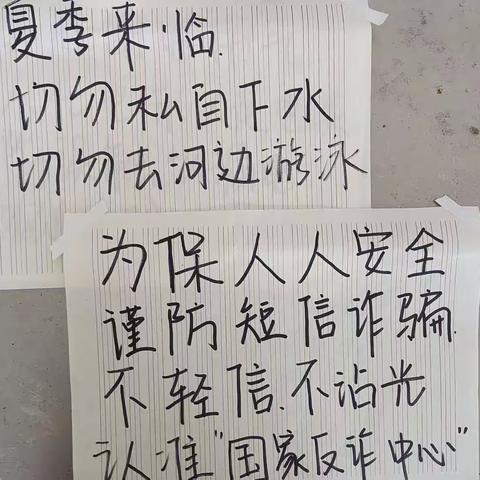 夏季来临.
切勿私自下水
切勿去河边游泳
为保人人安全
谨防短信诈骗.
不轻信.不沾光
认准"国家反诈中心"